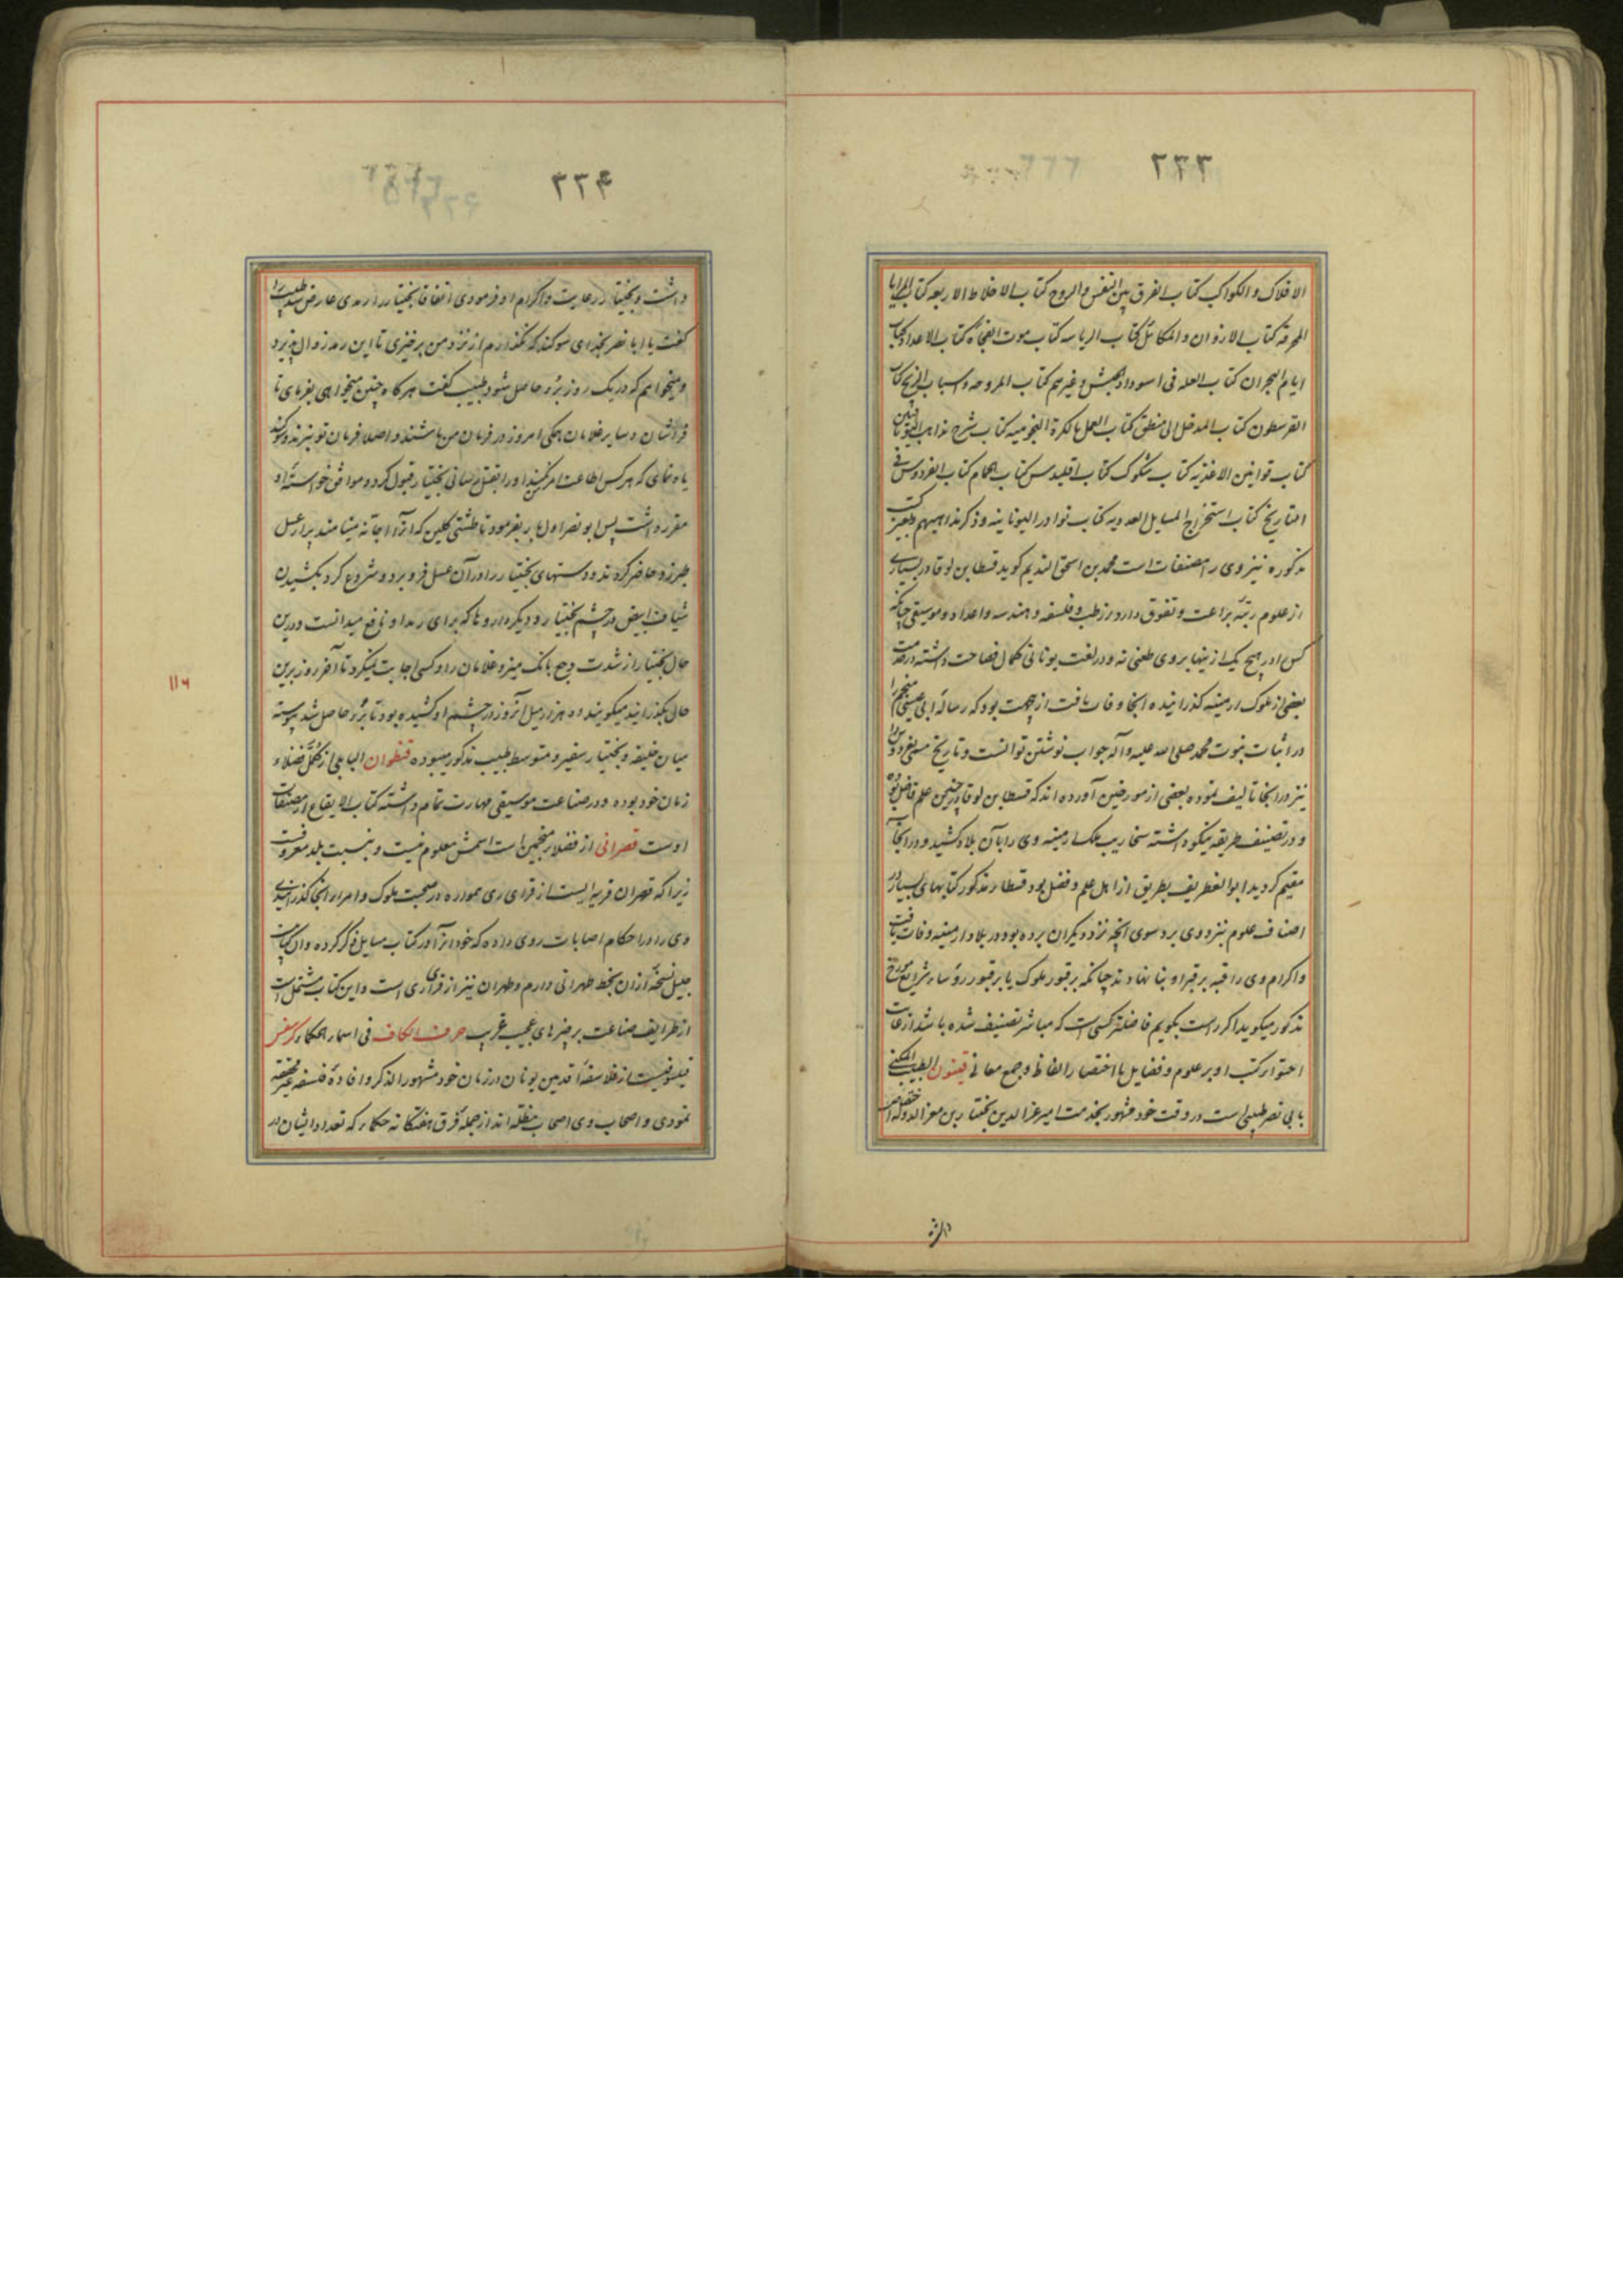 ۲۳۳
الافلاک و الکواکب کتاب الفرق بین النفس و الروح کتاب الاخلاط الاربعه کتاب المرایا
المحرقه کتاب الاوزان و المکائل کتاب الریاسه کتاب موت الفجاه کتاب الاعداد کتاب
ایام البحران کتاب العله فی اسوداد الحبش و غیرهم کتاب المروحه و اسباب الریح کتاب
القرسطون کتاب المدخل الی منطق کتاب العمل بالکرة النجومیه کتاب شرح مذاهب الیونانیین
کتاب قوانین الاغذیه کتاب شکوک کتاب اقلیدس کتاب الحمام کتاب الفردوس فی
التاریخ کتاب استخراج المسایل العددیه کتاب نوادر الیونانیه و ذکر مذاهبهم و بغیر کتب
مذکوره نیز وی را مصنفات است محمد بن اسحق الندیم کوید قسطا بن لوقا در بسیاری
از علوم رتبهٔ براعت و تفوق دارد از طب و فلسفه و هندسه و اعداد و موسیقی چنانکه
کس را در هیچ یک از ینها بروی طعنی نه و در لغت یونانی کمال فصاحت داشته در خدمت
بعضی از ملوک ارمینیه کذرانیده انجا وفات یافت از جهت بود که رسالهٔ ابی عیسی منجم را
در اثبات نبوت محمد صلی الله علیه و آله جواب نوشتن توانست و تاریخ مسمی بفردوس را
نیز در انجا تالیف نموده بعضی از مورخین آورده اند که قسطا بن لوقا در چنین علم فاضل بوده
و در تصنیف طریقه نیکو داشته سنحاریب ملک ارمینیه وی را بآن بلاد کشید و در انجا
مقیم کردید ابو الغطریف بطریق از اهل علم و فضل بود قسطا مذکور کتابهای بسیار در
اصناف علوم بنزد وی برد سوی انچه نزد دیکران برده بود در بلاد ارمینیه وفات یافت
و اکرام وی را قبه بر قبر او بنا نهادند چنانکه بر قبور ملوک یا بر قبور رؤساء شرایع مورخ
مذکور میکوید اکر راست بکویم فاضلتر کسی است که مباشر تصنیف شده باشد از غایت
احتواء کتب او بر علوم و فضایل با اختصار الفاظ و جمع معانی قینون الطبیب المکنی
بابی نصر طبیبی است در وقت خود مشهور بخدمت امیر عز الدین بختیار بن معز الدوله اختصاص
داشت
۲۳۴
داشت و بختیار در رعایت و اکرام او فرمودی اتفاقا بختیار را رمدی عارض شد طبیب را
کفت یا ابا نصر بخدای سوکند که نکذارم از نزد من برخیزی تا این رمد زوال پذیرد
و میخواهم که در یک روز برٔ حاصل شود طبیب کفت هر کاه چنین میخواهی بفرمای تا
فراشان و سایر غلامان همکی امروز در فرمان من باشند و اصلا فرمان تو نبرند و سوکند
یاد نمای که هر کس اطاعت امر نکند او را بقتل رسانی بختیار قبول کرد و موافق خواستهٔ او
مقرر داشت پس ابو نصر اول بار بفرمود تا طشتی کلین که انرا اجانه مینامند پر از عسل
طبرزد حاضر کردند و دستهای بختیار را در آن عسل فرو برد و شروع کرد بکشیدن
شیاف ابیض در چشم بختیار و دیکر داروها که برای رمد او نافع میدانست و درین
حال بختیار از شدت وجع بانک میزد غلامان را و کسی اجابت نمیکرد تا آخر روز برین
حال بکذرانید میکویند دو هزار میل آنروز در چشم او کشیده بود تا برٔ حاصل شد پیوسته
میان خلیفه و بختیار سفیر و متوسط طبیب مذکور میبوده قنطوان البابلی از کمّل فضلاء
زمان خود بوده و در صناعت موسیقی مهارت تمام داشته کتاب الایقاع از مصنفات
اوست قصرانی از فضلاء منجمین است اسمش معلوم نیست و بنسبت بلد معروفست
زیرا که قصران قریه ایست از قرای ری همواره در صحبت ملوک و امراء انجا کذرانیدی
وی را در احکام اصابات روی داده که خود انرا در کتاب مسایل ذکر کرده و ان کتابیست
جلیل نسخهٔ از ان بخط طهرانی دارم و طهران نیز از قرای ری است و این کتاب مشتمل است
از طرایف صناعت بر چیزهای عجیب غریب حرف الکاف فی اسماء الحکماء کرسفس
فیلسوفیست از فلاسفهٔ اقدمین یونان در زمان خود مشهور الذکر و افادهٔ فلسفه غیر محققه
نمودی و اصحاب وی اصحاب مظله اند از جمله فرق هفتکانه حکماء که تعداد ایشان در
۱۱۶